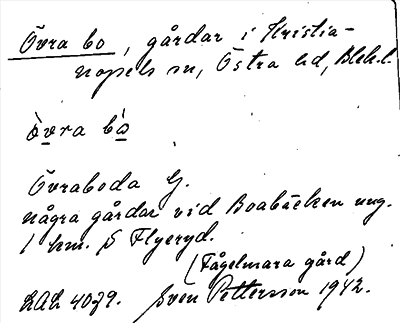 Övra bo, gårdar i Kristia-
nopels sn, Östra hd, Blek. l.
òvra bò
Övraboda G.
några gårdar vid Boabäcken ung.
1 km. S Flyeryd.
(Fågelmara gård)
LAL 4079. Sven Pettersson 1942.